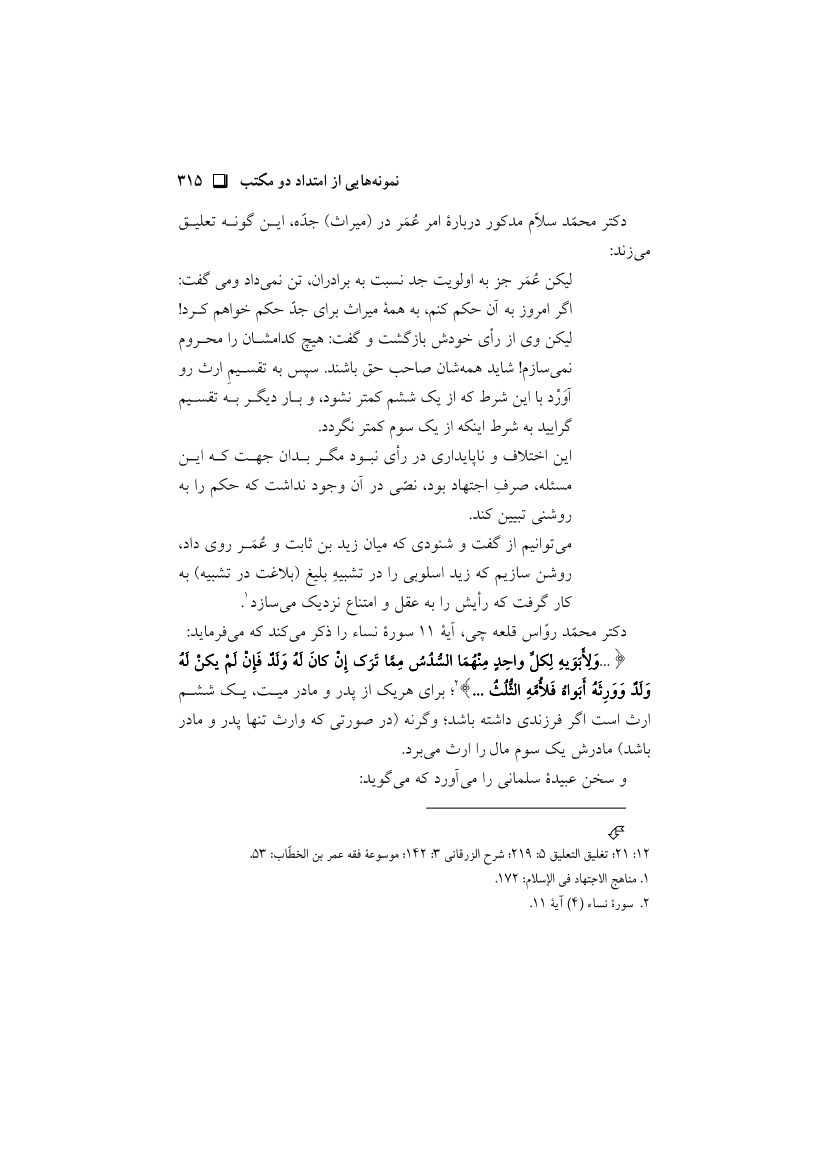 نمونه‌هایی از امتداد دو مکتب ❏ ۳۱۵
دکتر محمّد سلاّم مدکور دربارۀ امر عُمَر در (میراث) جدّه، ایـن گونـه تعلیـق
می‌زند:
لیکن عُمَر جز به اولویت جد نسبت به برادران، تن نمی‌داد ومی گفت:
اگر امروز به آن حکم کنم، به همۀ میراث برای جدّ حکم خواهم کـرد!
لیکن وی از رأی خودش بازگشت و گفت: هیچ کدامشـان را محـروم
نمی‌سازم! شاید همه‌شان صاحب حق باشند. سپس به تقسـیمِ ارث رو
آوَرْد با این شرط که از یک ششم کمتر نشود، و بـار دیگـر بـه تقسـیم
گرایید به شرط اینکه از یک سوم کمتر نگردد.
این اختلاف و ناپایداری در رأی نبـود مگـر بـدان جهـت کـه ایـن
مسئله، صرفِ اجتهاد بود، نصّی در آن وجود نداشت که حکم را به
روشنی تبیین کند.
می‌توانیم از گفت و شنودی که میان زید بن ثابت و عُمَـر روی داد،
روشن سازیم که زید اسلوبی را در تشبیهِ بلیغ (بلاغت در تشبیه) به
کار گرفت که رأیش را به عقل و امتناع نزدیک می‌سازد۱.
دکتر محمّد روّاس قلعه چی، آیۀ ۱۱ سورۀ نساء را ذکر می‌کند که می‌فرماید:
﴿ ...وَلِأَبَوَیهِ لِکلِّ واحِدٍ مِنْهُمَا السُّدُسُ مِمَّا تَرَک إِنْ کانَ لَهُ وَلَدٌ فَإِنْ لَمْ یکنْ لَهُ
وَلَدٌ وَوَرِثَهُ أَبَواهُ فَلأُمِّهِ الثُّلُثُ ...﴾۲؛ برای هریک از پدر و مادر میـت، یـک ششـم
ارث است اگر فرزندی داشته باشد؛ وگرنه (در صورتی که وارث تنها پدر و مادر
باشد) مادرش یک سوم مال را ارث می‌برد.
و سخن عبیدۀ سلمانی را می‌آورد که می‌گوید:
۱۲: ۲۱؛ تغلیق التعلیق ۵: ۲۱۹؛ شرح الزرقانی ۳: ۱۴۲؛ موسوعۀ فقه عمر بن الخطّاب: ۵۳.
۱. مناهج الاجتهاد فی الإسلام: ۱۷۲.
۲. سورۀ نساء (۴) آیۀ ۱۱.